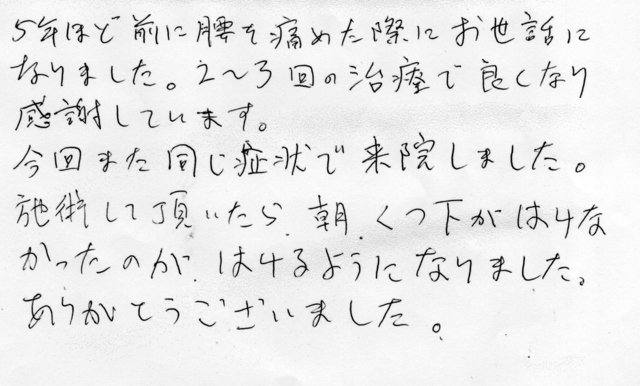 5年ほど前に腰を痛めた際にお世話に
なりました。2〜3回の治療で良くなり
感謝しています。
今回また同じ症状で来院しました。
施術して頂いたら、朝、くつ下がはけな
かったのが、はけるようになりました。
ありがとうございました。